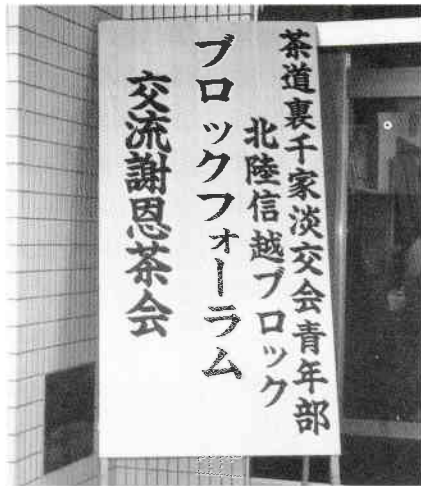 茶道裏千家淡交会青年部
北陸信越ブロック
ブロックフォーラム
交流謝恩茶会